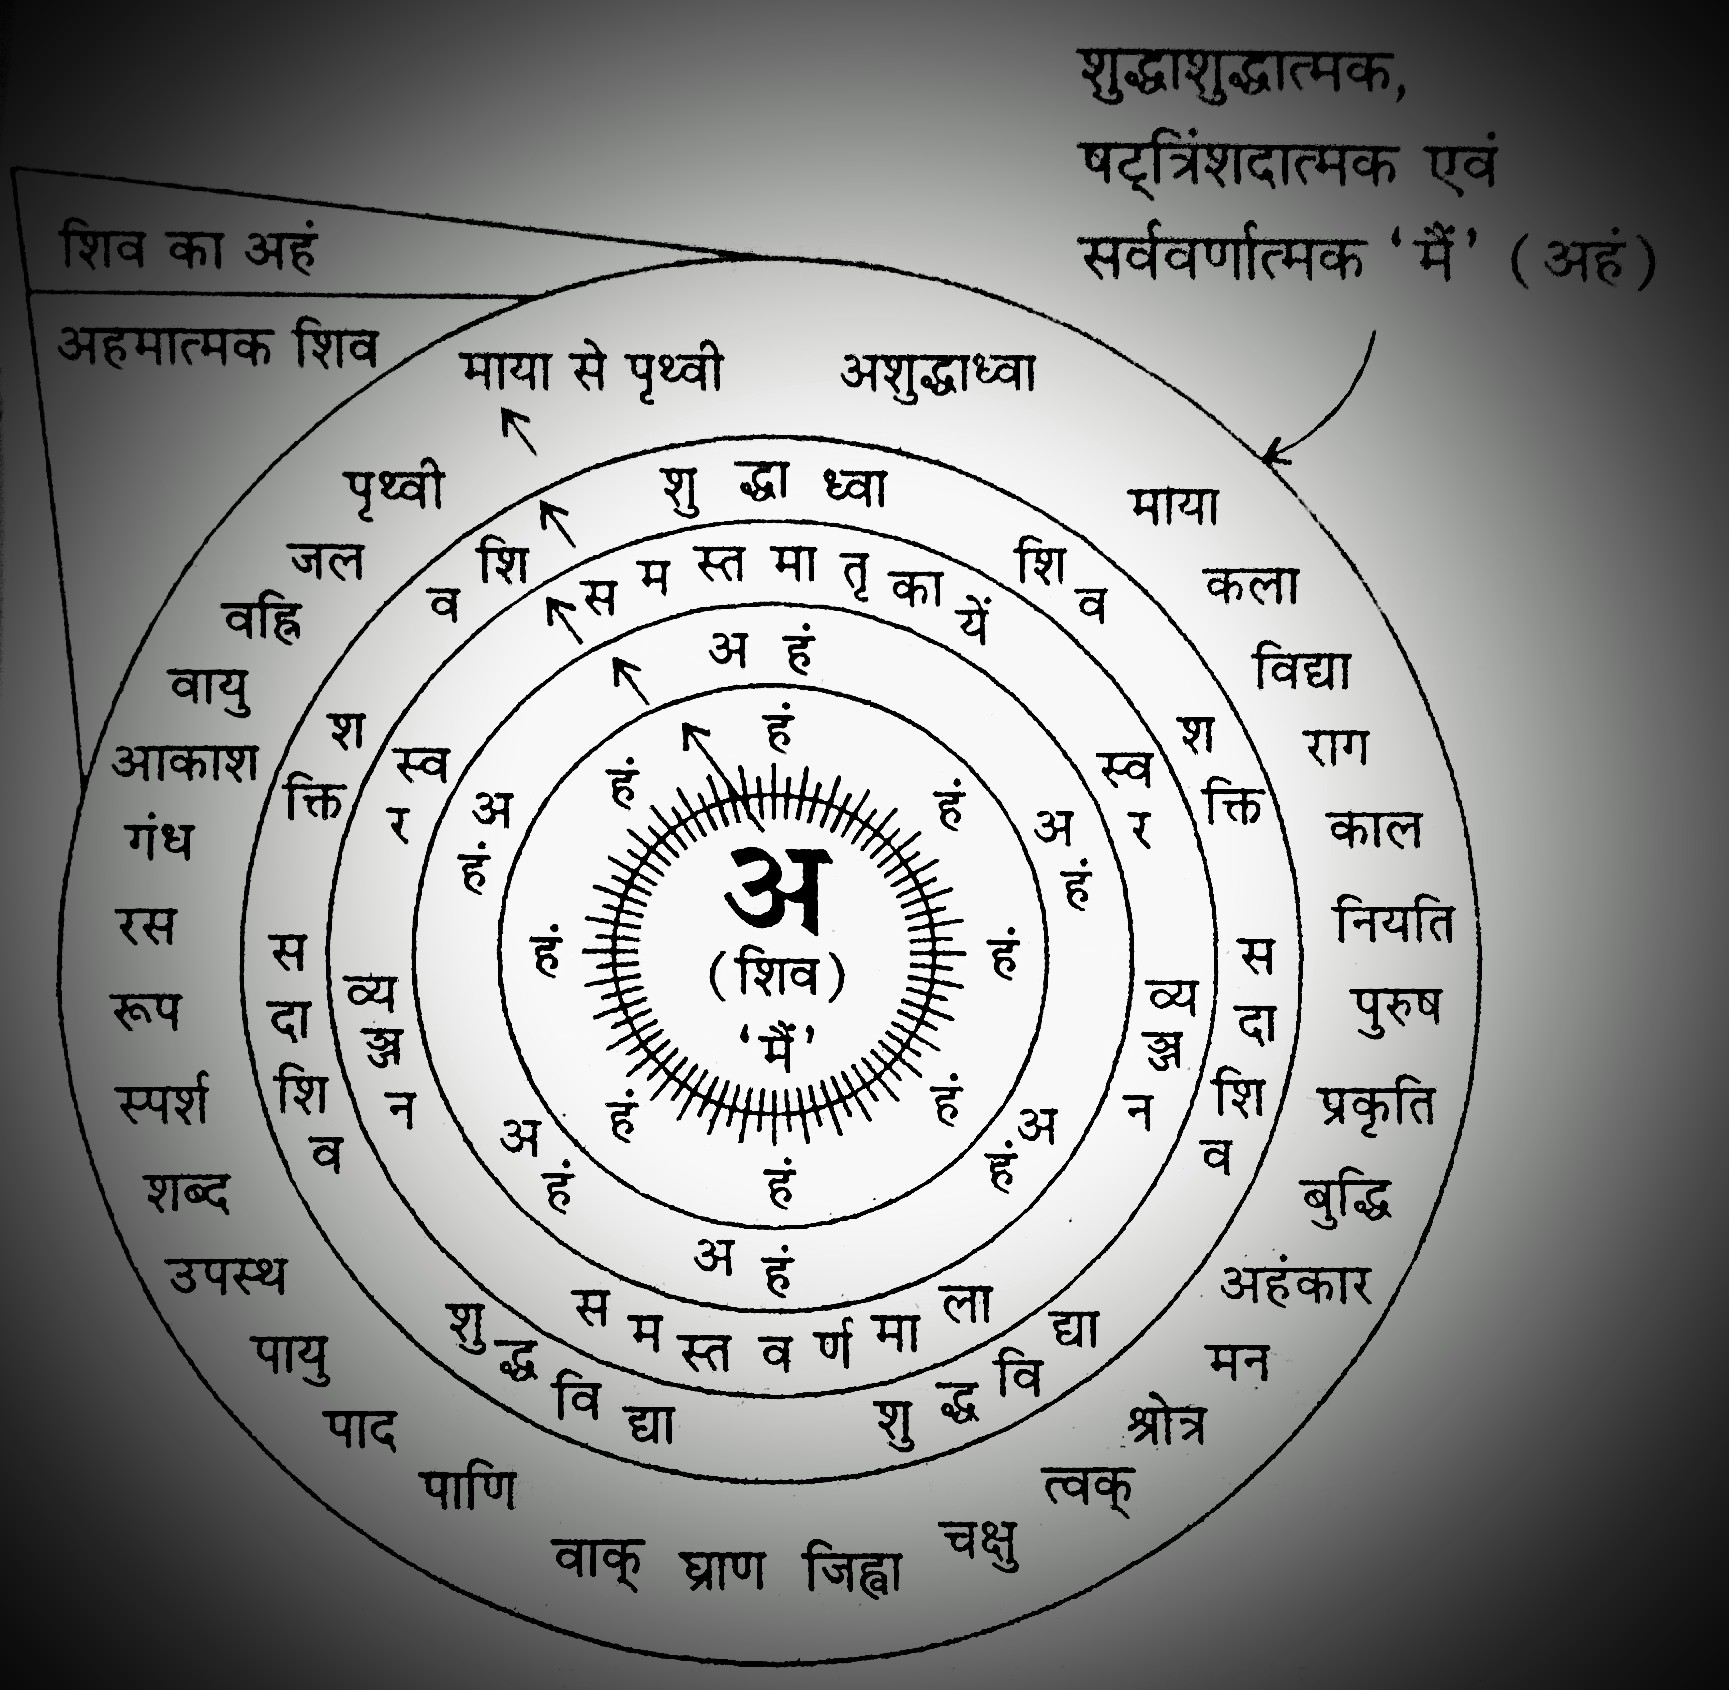 शुद्धाशुद्धात्मक,
षट्त्रिंशदात्मक एवं
सर्ववर्णात्मक ‘मैं’ (अहं)
शिव का अहं
अहमात्मक शिव
माया से पृथ्वी
अशुद्धाध्वा
माया
कला
विद्या
राग
काल
नियति
पुरुष
प्रकृति
बुद्धि
अहंकार
मन
श्रोत्र
त्वक्
चक्षु
जिह्वा
घ्राण
वाक्
पाणि
पाद
पायु
उपस्थ
शब्द
स्पर्श
रूप
रस
गंध
आकाश
वायु
वह्नि
जल
पृथ्वी
शु द्धा ध्वा
शि व
श क्ति
स दा शि व
शु द्ध वि द्या
शि व
श क्ति
स दा शि व
शु द्ध वि द्या
स म स्त मा तृ का यें
स्व र
व्य ञ्ज न
स्व र
व्य ञ्ज न
स म स्त व र्ण मा ला
अ हं
अ हं
अ हं
अ हं
अ हं
अ हं
हं
हं
हं
हं
हं
हं
हं
हं
अ
(शिव)
‘मैं’